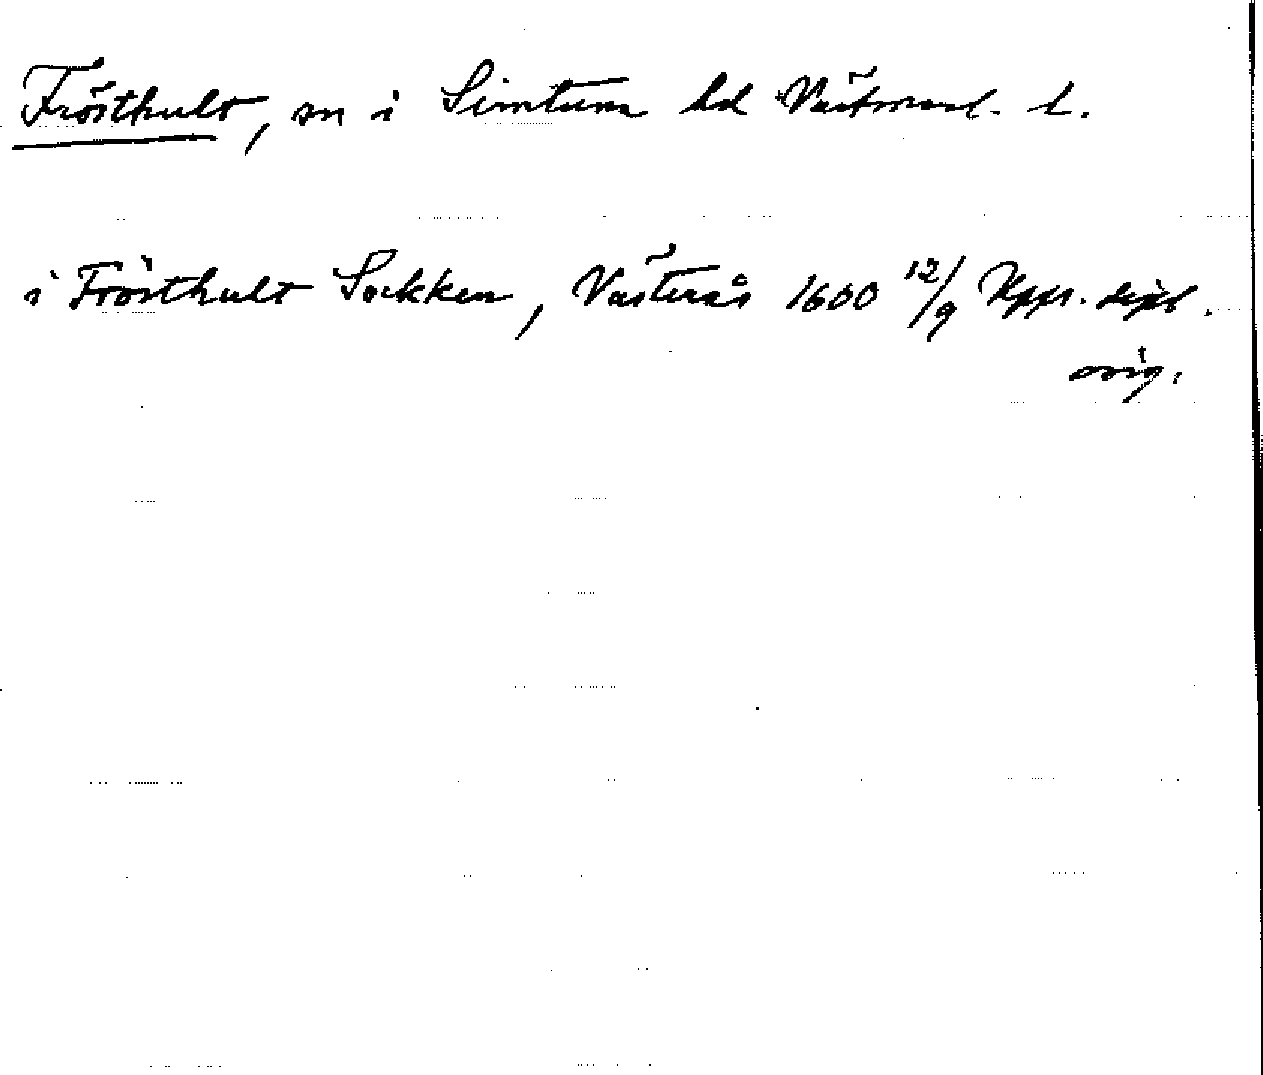 Frösthult, sn i Simtuna hd Västmanl. l.
i Frösthult Sockken, Västerås 1600 12/9 Upps. dipl.
orig.